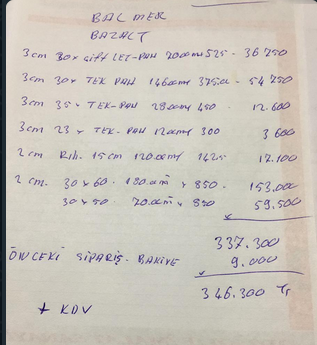 BALMER
BAZALT
3 cm 30x çift LET-PAH 70.00mt 525 - 36.750
3 cm 30x TEK PAH 146.00mt 375.- 54.750
3 cm 35x TEK-PAH 28.00mt 450 - 12.600
3 cm 23x TEK-PAH 12.00mt 300 3.600
2 cm Rıh. 15cm 120.00mt 142.5 17.100
2 cm. 30x60. 180.00m² x 850. 153.000
30x50. 70.00m² x 850 59.500
337.300
ÖNCEKİ SİPARİŞ. BAKİYE 9.000
346.300 TL
+ KDV